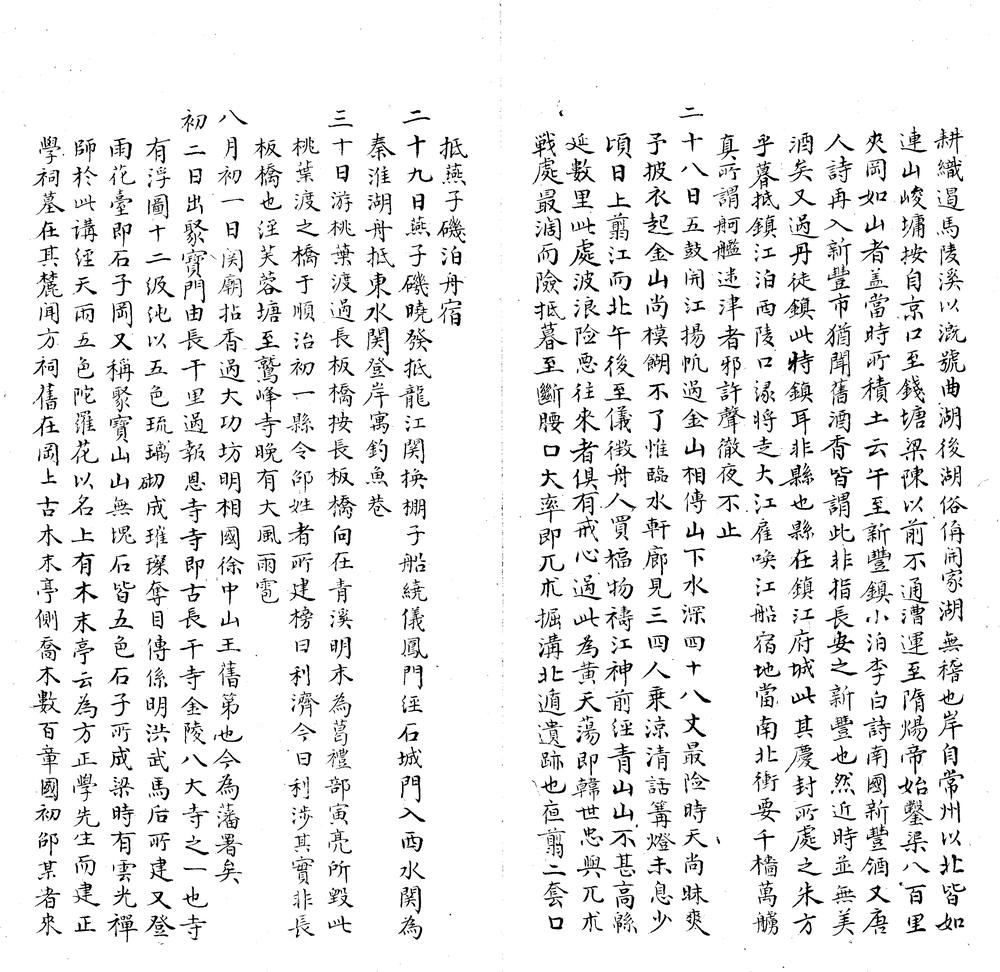 耕織過馬陵溪以漑號曲湖後湖俗侢開家湖無稽也岸自常州以北皆如
連山峻墉按自京口至錢塘梁陳以前不通漕運至隋煬帝始鑿渠八百里
夾岡如山者盖當時所積土云午至新豐鎮小泊李白詩南國新豐酒又唐
人詩再入新豐市猶聞舊酒香皆謂此非指長安之新豐也然近時並無美
酒矣又過丹徒鎮此特鎮耳非縣也縣在鎮江府城此其慶封所處之朱方
乎暮抵鎮江泊西陵口涿將走大江雇喚江船宿地當南北衝要千檣萬艣
真所謂舸艦迷津者邪許聲徹夜不止
二十八日五鼓開江揚帆過金山相傳山下水深四十八丈最險時天尚昧爽
予披衣起金山尚模糊不了惟臨水軒廊見三四人乗涼清話篝燈未息少
頃日上翦江而北午後至儀徴舟人買楅物禱江神前經青山山不甚高緜
延數里此處波浪險惡往來者俱有戒心過此為黄天蕩即韓世忠與兀朮
戰處最濶而險抵暮至斷腰口大率即兀朮掘溝北遁遺跡也夜翦二套口
抵燕子磯泊舟宿
二十九日燕子磯曉發抵龍江関換棚子船繞儀鳳門經石城門入西水関為
秦淮湖舟抵東水関登岸寓釣魚巷
三十日游桃葉渡過長板橋按長板橋向在青溪明末為葛禮部寅亮所毀此
桃葉渡之橋于順治初一縣令邵姓者所建榜曰利濟今曰利涉其實非長
板橋也徑芙蓉塘至鷲峰寺晚有大風雨雹
八月初一日関廟拈香過大功坊明相國徐中山王舊第也今為藩署矣
初二日出聚寶門由長干里過報恩寺寺即古長干寺金陵八大寺之一也寺
有浮圖十二级純以五色琉璃砌成璀璨奪目傳係明洪武馬后所建又登
雨花臺即石子岡又稱聚寶山山無塊石皆五色石子所成梁時有雲光禪
師於此講經天雨五色陀羅花以名上有木末亭云為方正學先生而建正
學祠墓在其麓聞方祠舊在岡上古木末亭側喬木數百章國初邵某者來